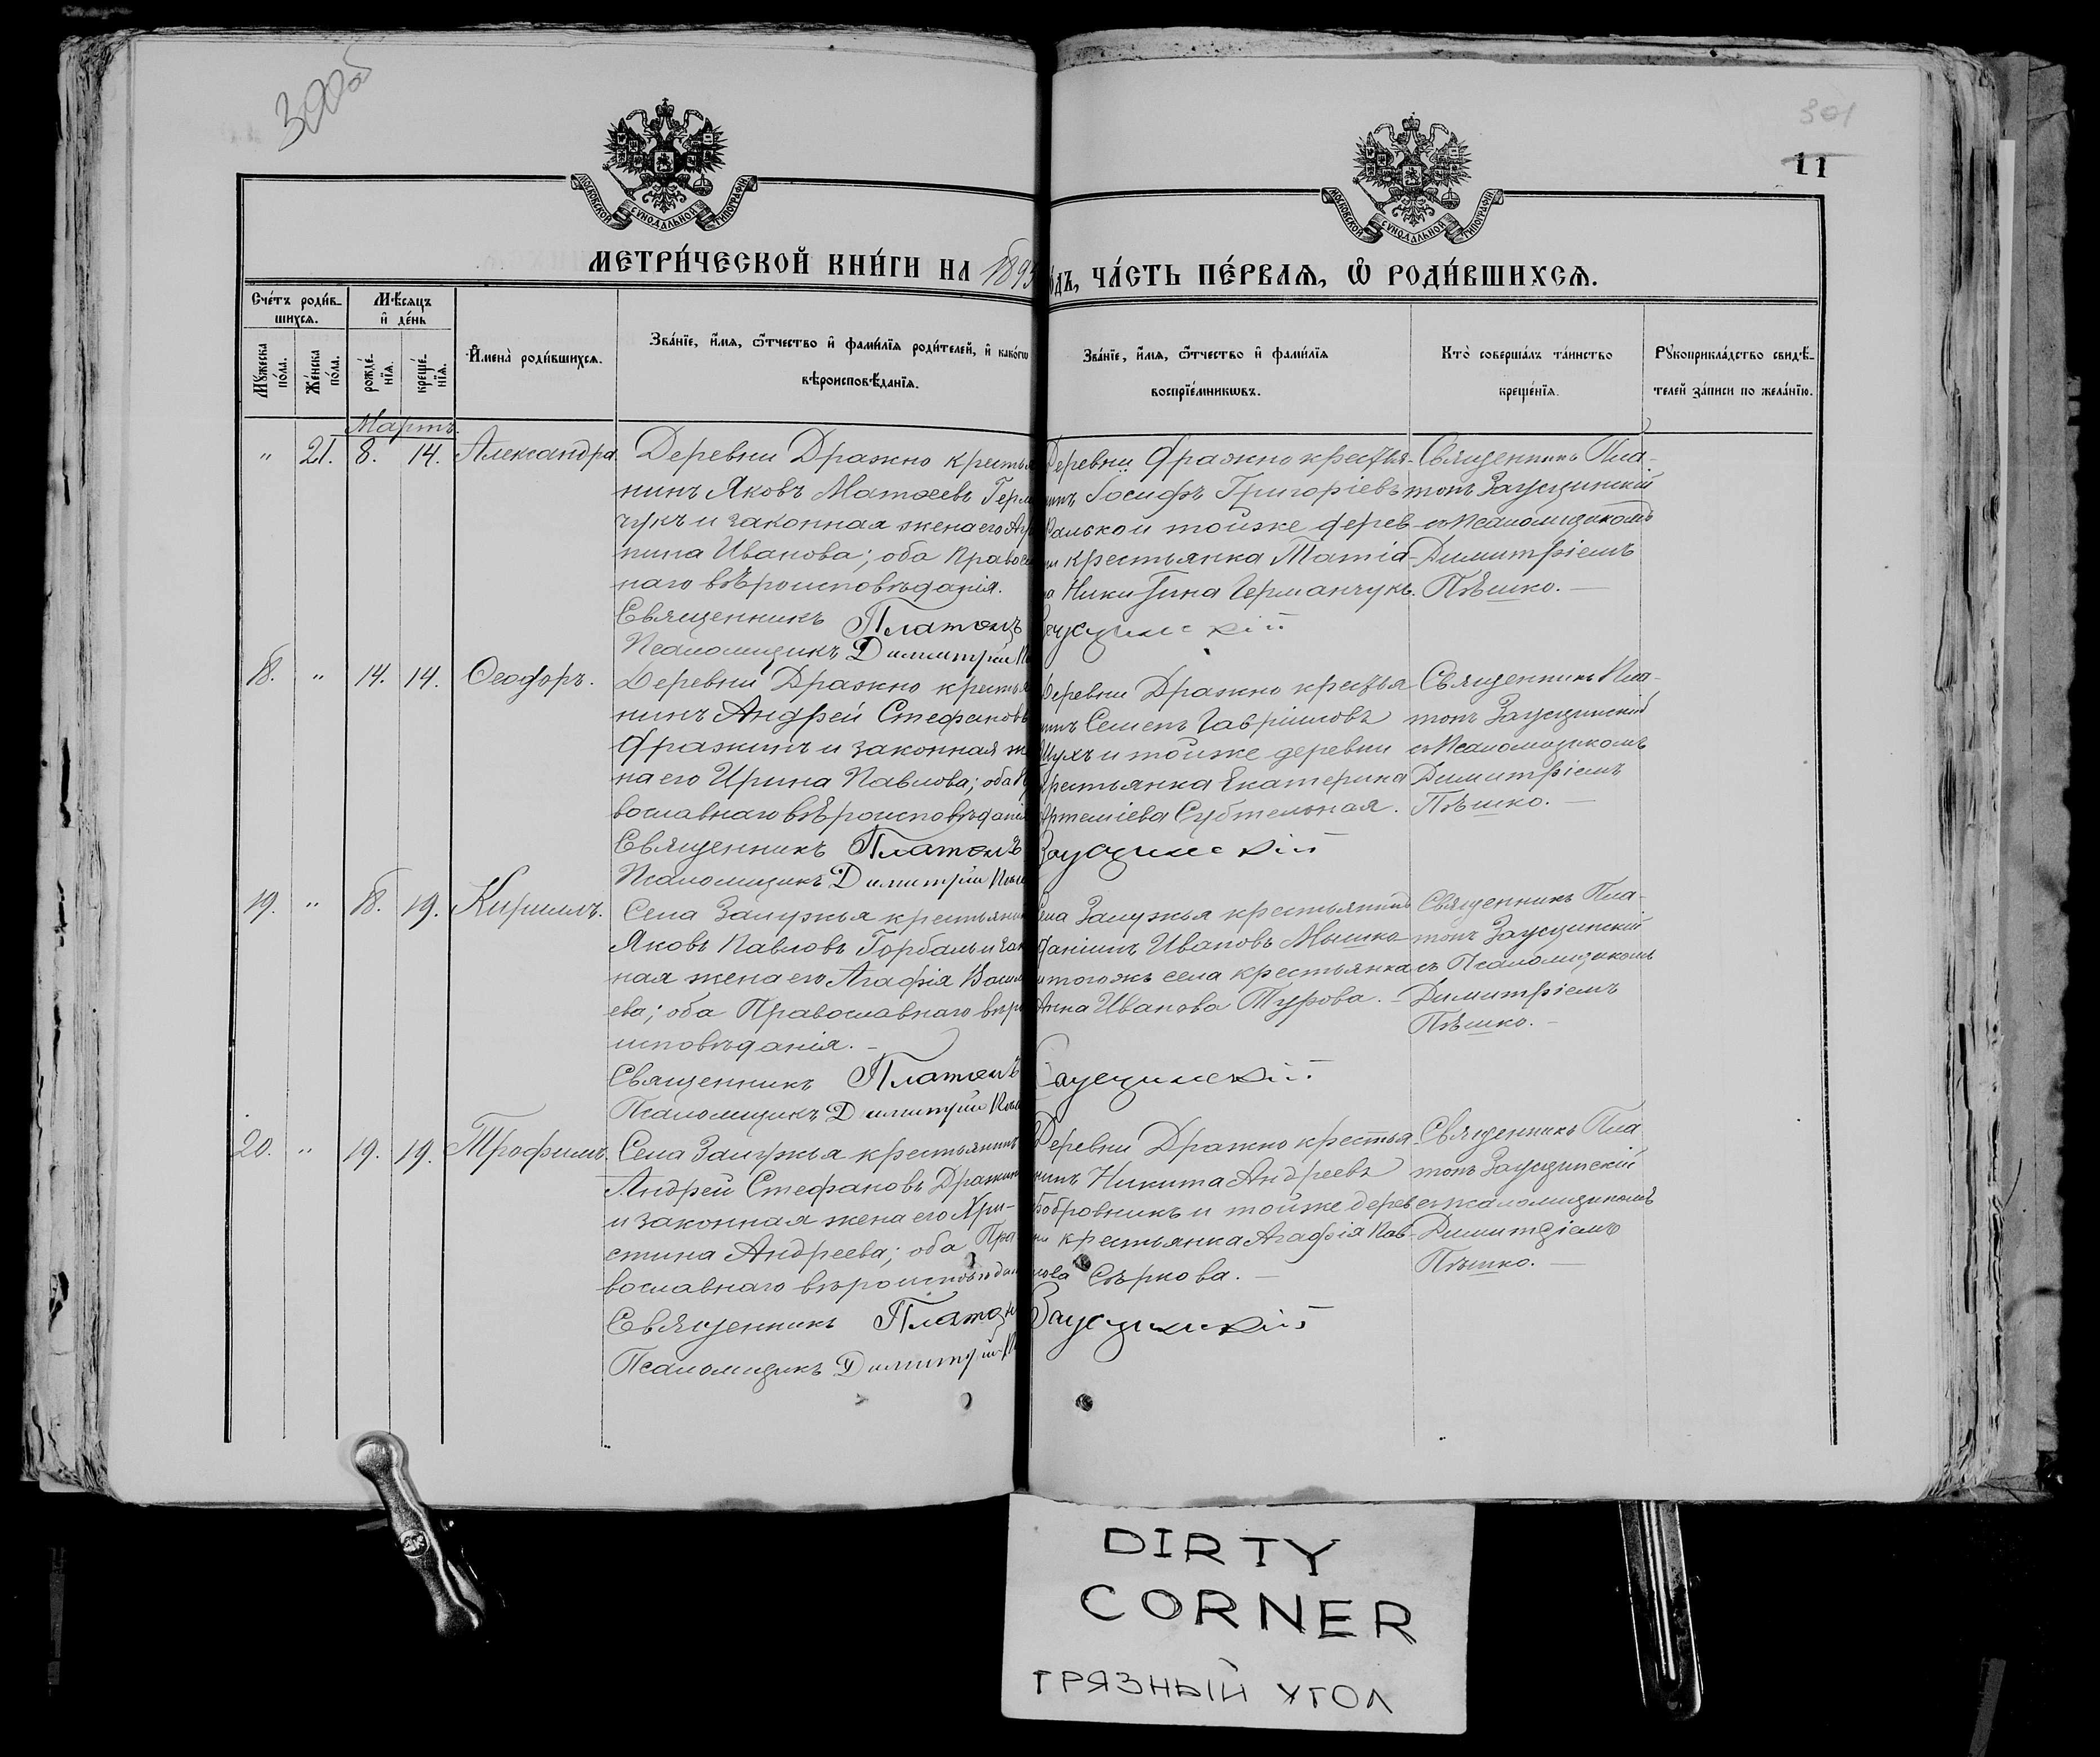 300об
301
11
МОСКОВСКОЙ СѴНОДАЛЬНОЙ ТИПОГРАФІИ
МОСКОВСКОЙ СѴНОДАЛЬНОЙ ТИПОГРАФІИ
МЕТРИ́ЧЕСКОЙ КНИ́ГИ НА 1895
ДЪ, ЧА́СТЬ ПЕ́РВАѦ, Ѡ҆ РОДИ́ВШИХСѦ.
Сче́тъ роди́в-
шихсѧ.
Мꙋ́жеска по́ла.
Же́нска по́ла.
Мѣ́сѧцъ
и҆ де́нь
рожде́-
нїѧ.
креще́-
нїѧ.
И҆мена̀ роди́вшихсѧ.
Зва́нїе, и҆́мѧ, ѻ҆́тчество и҆ фами́лїѧ роди́телей, и҆ како́гѡ
вѣроисповѣ́данїѧ.
Зва́нїе, и҆́мѧ, ѻ҆́тчество и҆ фами́лїѧ
воспрїе́мникѡвъ.
Кто̀ соверша́лъ та́инство
креще́нїѧ.
Рꙋкоприкла́дство свидѣ́-
телей за́писи по жела́нїю.
Мартъ.
" 21. 8. 14. Александра.
Деревни Дражно крестья
нинъ Яковъ Матѳеевъ Герм
чукъ и законная жена его Агр
пина Иванова; оба Правос
наго вѣроисповѣданія.
Священникъ Платонъ
Псаломщикъ Димитрій
Деревни Дражно крестья-
нинъ Іосифъ Григоріевъ
и тойже дерев-
ни крестьянка
на Никитина Германчукъ.
Заусцинскій
Священникъ Пла-
тонъ Заусцинскій
съ Псаломщикомъ
Димитріемъ
Пѣшко. —
18. " 14. 14. Ѳеодоръ.
Деревни Дражно крестья
нинъ Андрей Стефановъ
Дражинъ и законная же
на его Ирина Павлова; оба Пр
вославнаго вѣроисповѣданія
Священникъ Платонъ
Псаломщикъ Димитрій Пѣш
Деревни Дражно крестья
нинъ Семенъ Гавріиловъ
и тойже деревни
крестьянка Екатерина
Артеміева Субтельная.
Заусцинскій
Священникъ Пла-
тонъ Заусцинскій
съ Псаломщикомъ
Димитріемъ
Пѣшко. —
19. " 18. 19. Кириллъ.
Села Залужья крестьянин
Яковъ Павловъ Горбаль и зак
ная жена его Агафія Васил
ева; оба Православнаго вѣро
исповѣданія. —
Священникъ Платонъ
Псаломщикъ Димитрій Пѣш
Села Залужья крестьянинъ
Даніилъ Ивановъ Мышко
и тогожъ села крестьянка
Анна Иванова Турова. —
Заусцинскій
Священникъ Пла-
тонъ Заусцинскій
съ Псаломщикомъ
Димитріемъ
Пѣшко. —
20. " 19. 19. Трофимъ.
Села Залужья крестьянинъ
Андрей Стефановъ Дражин
и законная жена его Хри-
стина Андреева; оба Пра
вославнаго вѣроисповѣдан
Священникъ Платон
Псаломщикъ Димитрій
Деревни Дражно крестья
нинъ Никита Андреевъ
Бобровникъ и тойже дерев
ни крестьянка Агафія Пав-
лова Сѣркова. —
Заусцинскій
Священникъ Пла
тонъ Заусцинскій
съ псаломщикомъ
Димитріемъ
Пѣшко. —
DIRTY
CORNER
ГРЯЗНЫЙ УГОЛ